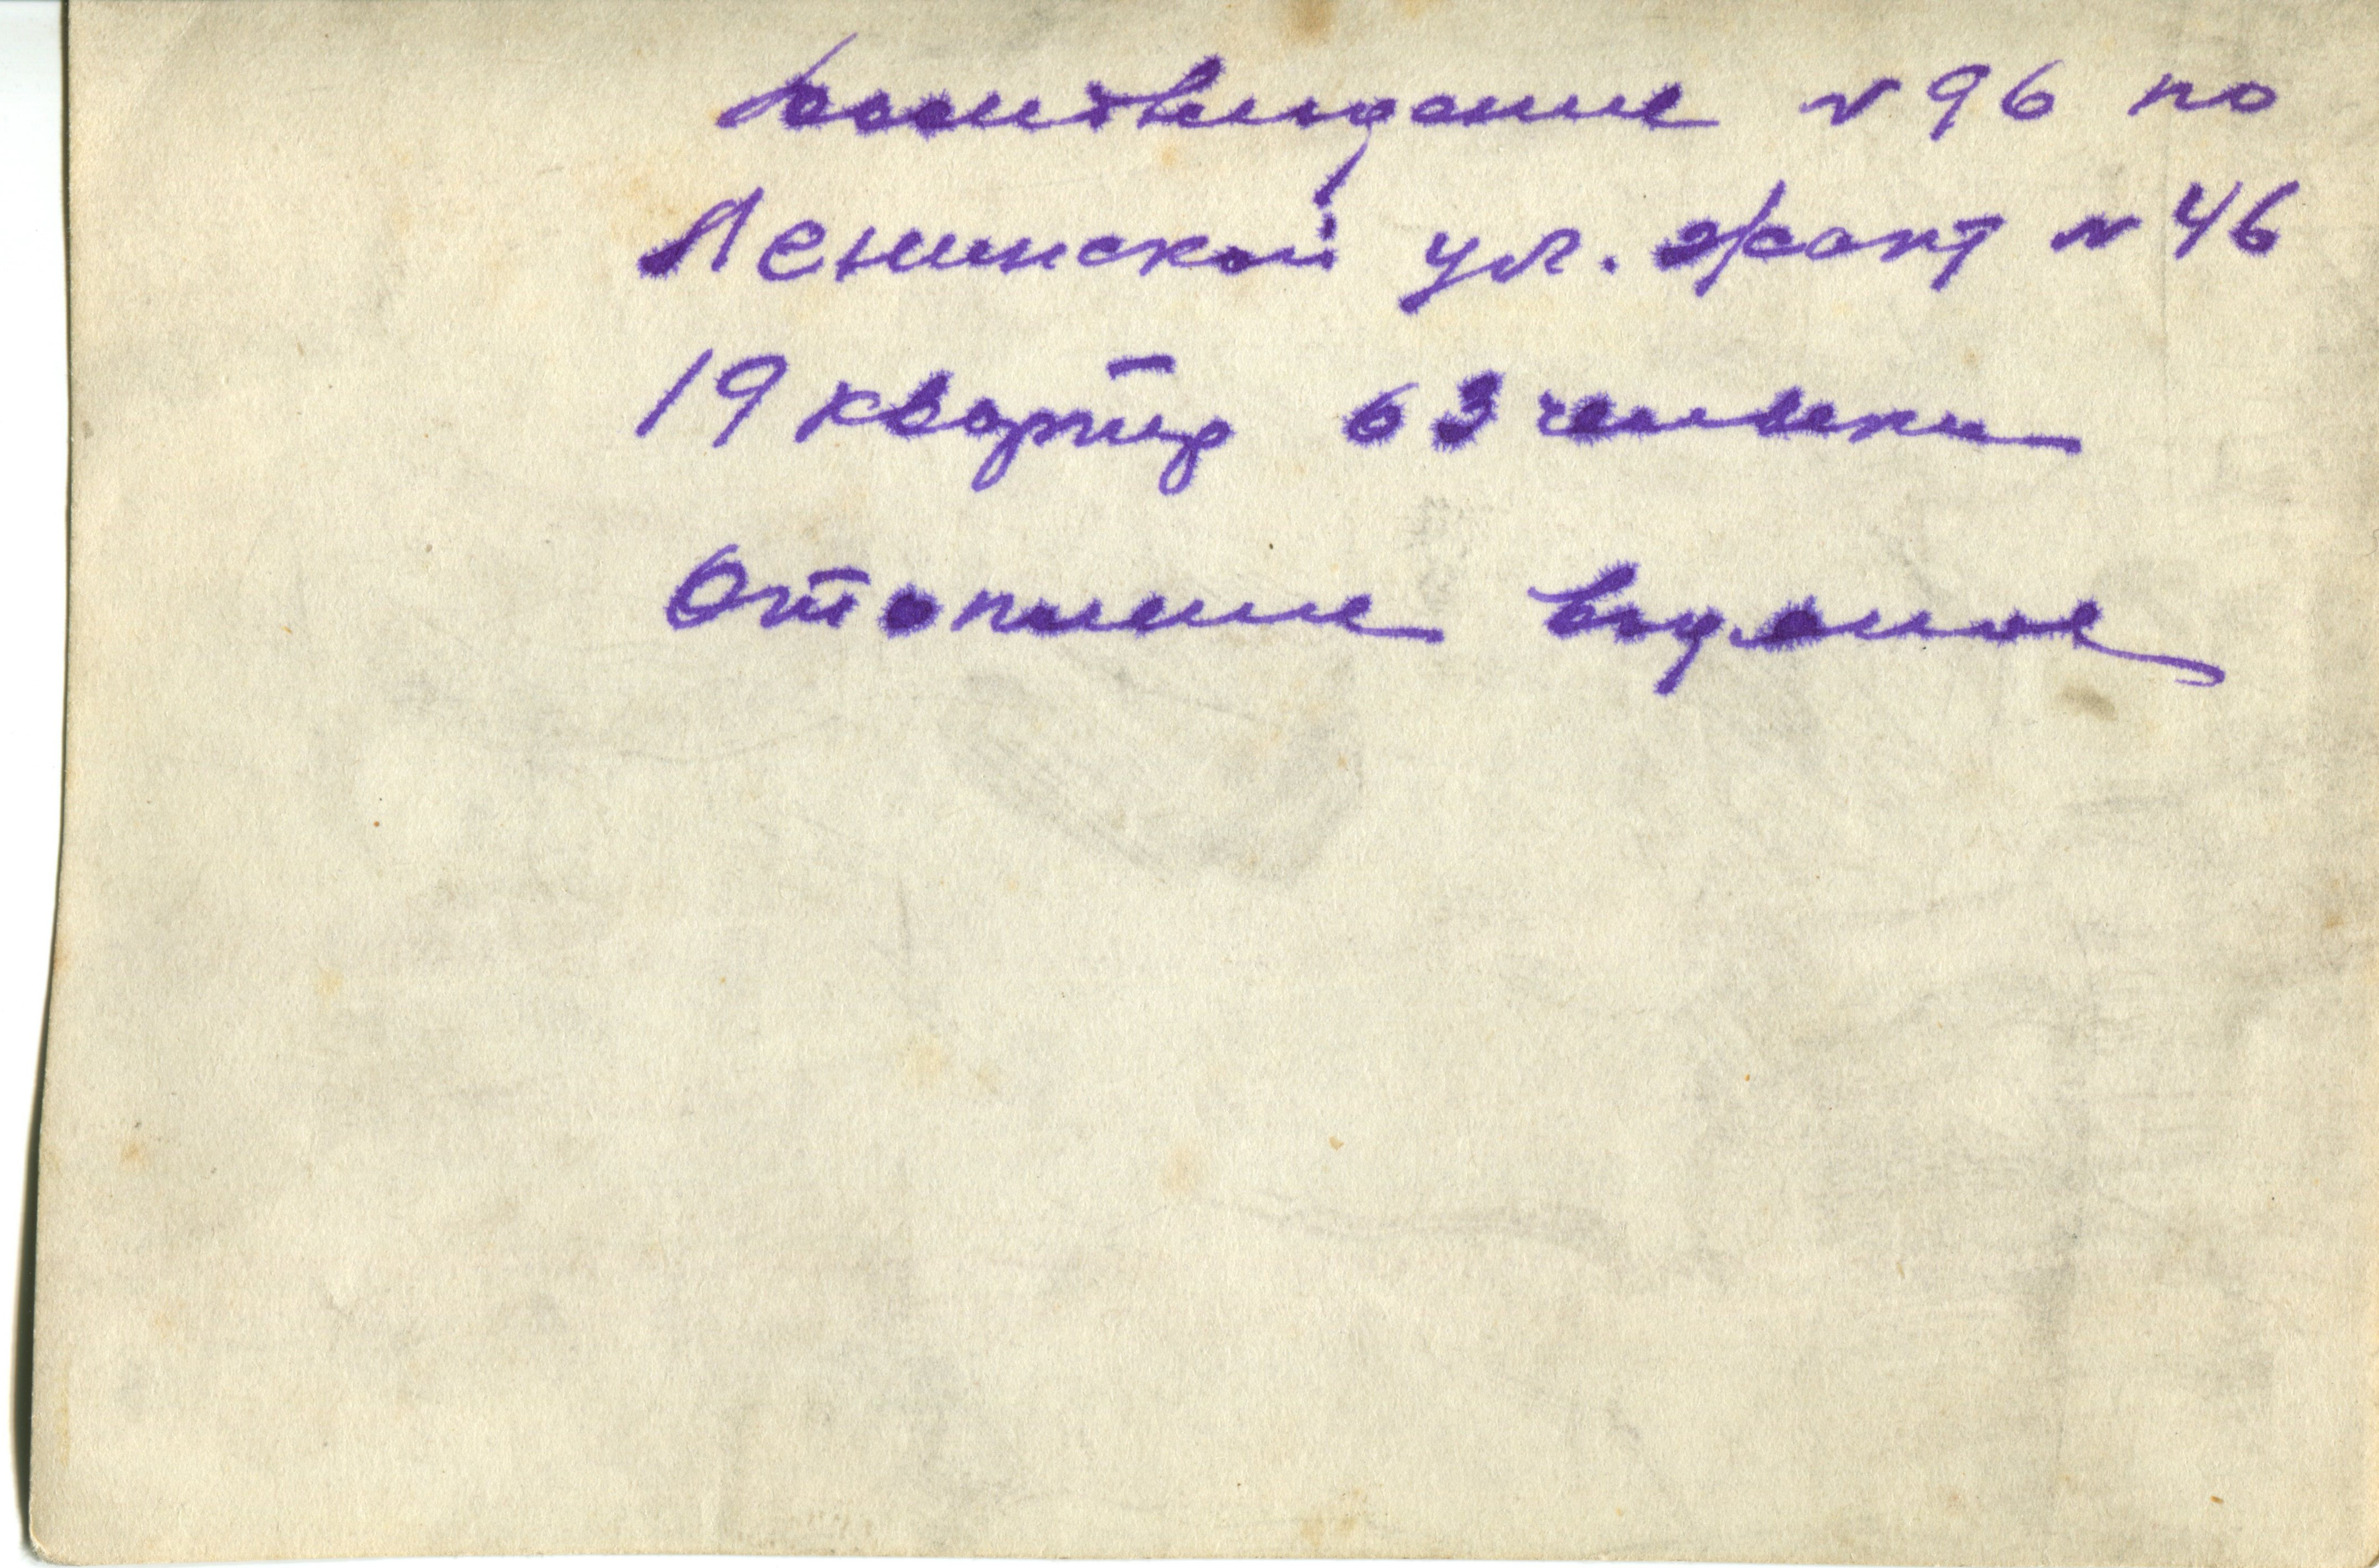 Домовладение № 96 по
Ленинской ул. Жакт № 46
19 квартир 63 человека
Отопление водяное